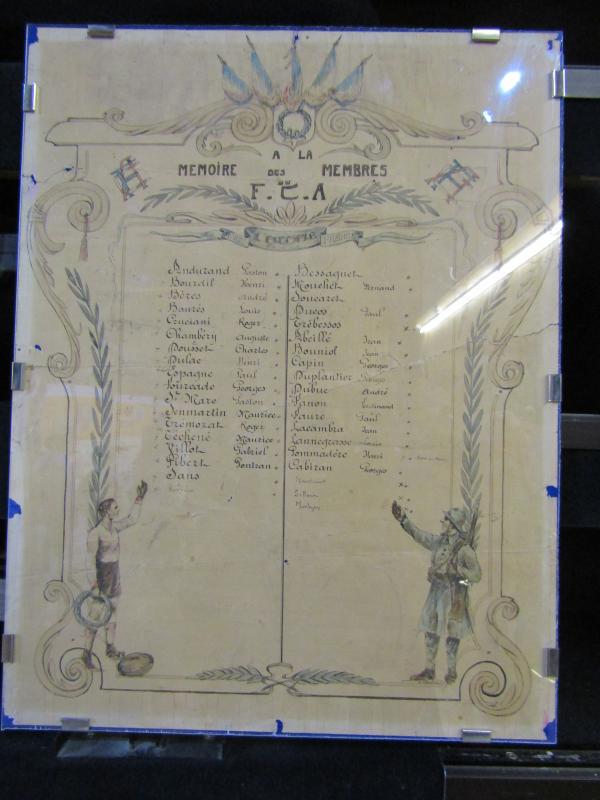 A LA
MEMOIRE DES MEMBRES
DU
F.C.A
Andurand Gaston
Bourdil Henri
Bères André
Baurès Louis
Cruciani Roger
Chambéry Auguste
Dousset Charles
Dulac Henri
Espagne Paul
Fourcade Georges
St Marc Gaston
Senmartin Maurice
Tremozat Roger
Téchené Maurice
Villot Gabriel
Fibert Gontran
Sans
Bessaguet
Mouchet Fernand
Soucaret
Ducos Paul
Trébessos
Abeillé Jean
Bouniol Jean
Capin Georges
Duplantier
Dubuc André
Fanon Ferdinand
Faure Paul
Lacambra Jean
Lannegrasse Louis
Pommadère Henri
Cabiran Georges